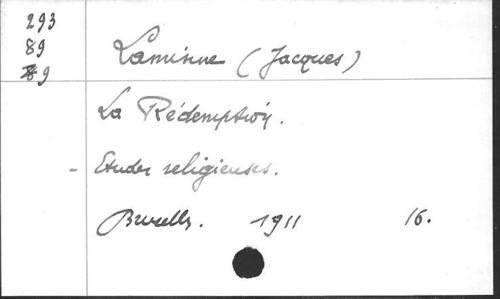 293
89
89
Laminne (Jacques)
La Rédemption.
- Etudes religieuses.
Bruxelles. 1911 16.